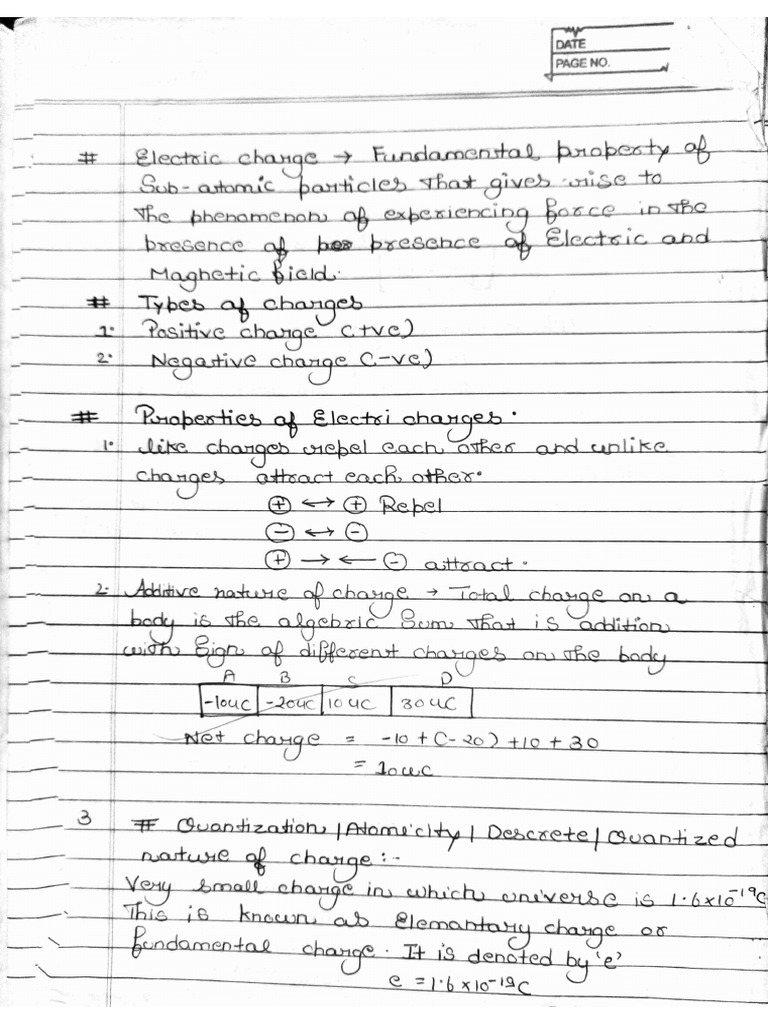 DATE
PAGE NO.
# Electric charge → Fundamental property of
Sub-atomic particles that gives rise to
the phenomenon of experiencing force in the
presence of presence of Electric and
Magnetic field.
# Types of charges
1. Positive charge (+ve)
2. Negative charge (-ve)
# Properties of Electri charges.
1. like charges repel each other and unlike
charges attract each other.
⊕ ↔ ⊕ Repel
⊖ ↔ ⊖
⊕ → ← ⊖ attract.
2. Additive nature of charge → Total charge on a
body is the algebric Sum that is addition
with Sign of different charges on the body
A B C D
-10uc -20uc 10uc 30uc
Net charge = -10 + (-20) + 10 + 30
= 10uc
3 # Quantization / Atomicity / Descrete / Quantized
nature of charge :-
Very small charge in which universe is 1.6x10⁻¹⁹C
This is known as Elemantary charge or
fundamental charge. It is denoted by 'e'
e = 1.6 x10⁻¹⁹C